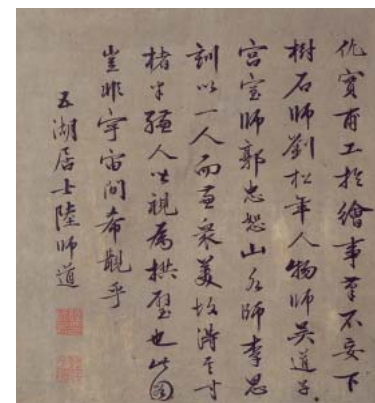 仇實甫工於繪事筆不妄下
樹石師劉松年人物師吳道子
宮室師郭忠恕山水師李思
訓以一人而兼衆美故得其寸
楮半縑人皆視爲拱璧也此圖
豈非宇宙間希覯乎
五湖居士陸師道